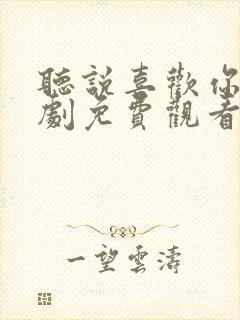 聽說喜歡你
劇免費觀看
一望雲濤